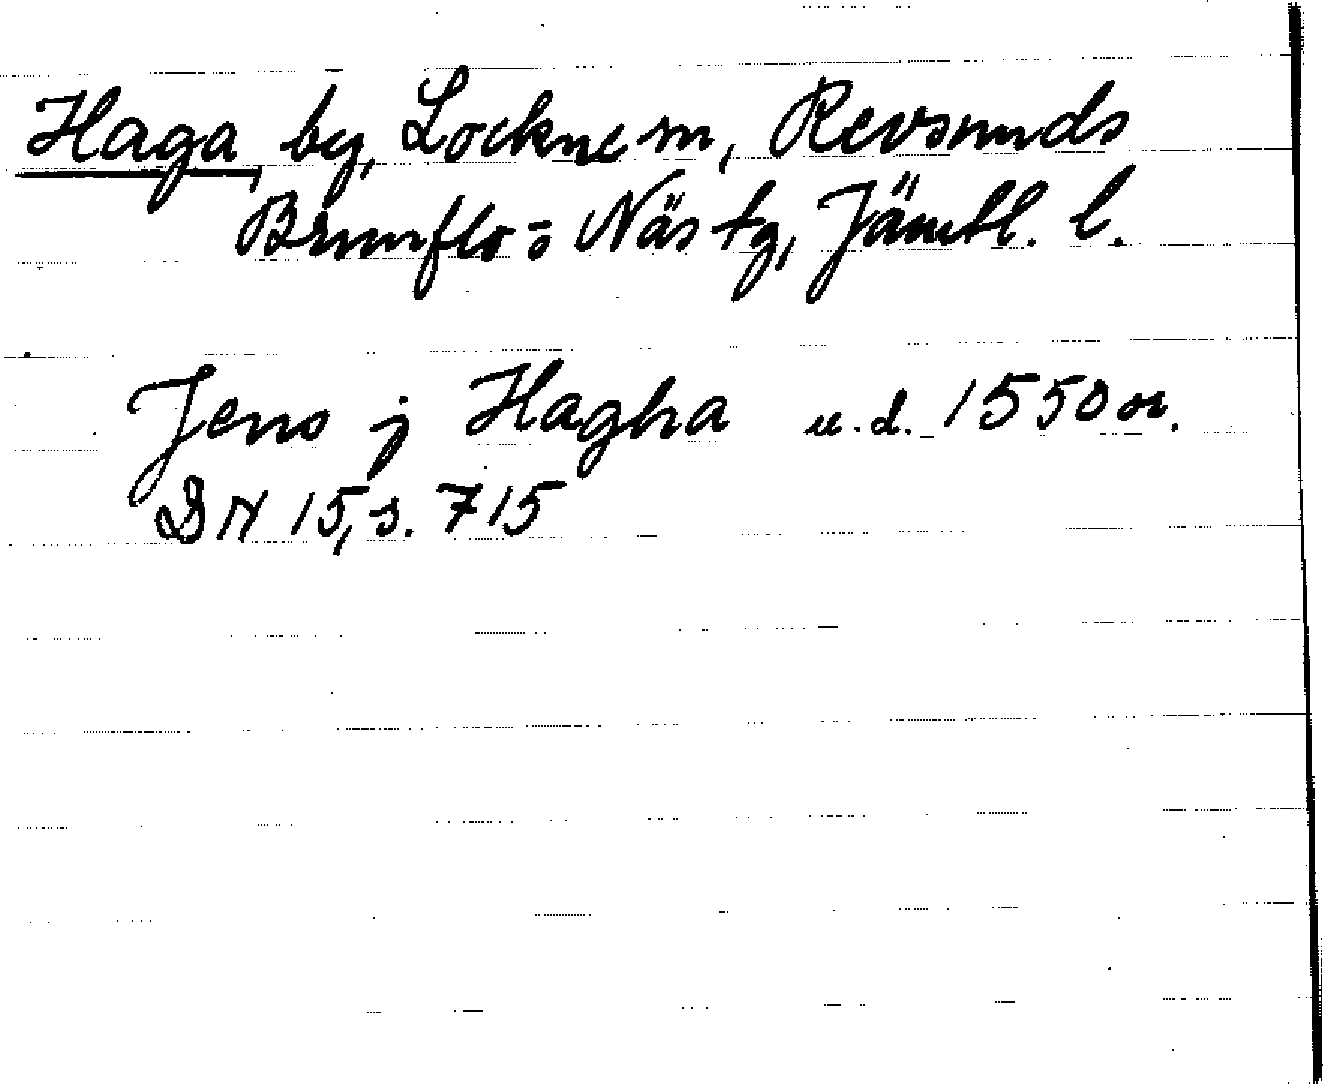 Haga, by, Lockne sn, Revsunds
Brunflo = Näs tg, Jämtl. l.
Jens j Hagha u.d. 1550 or.
DN 15, s. 715